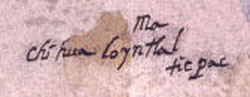 Ma
chihua loyntlal
ticpac